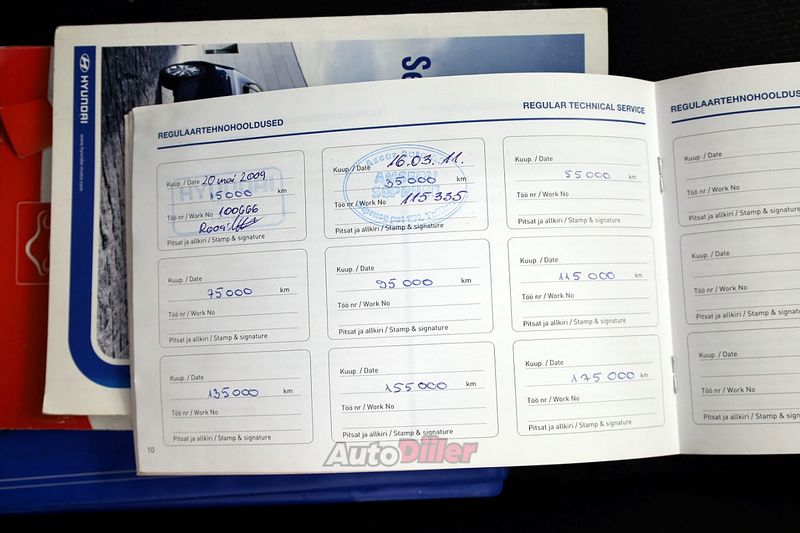 HYUNDAI
www.hyundai-motor.com
Se
REGULAARTEHNOHOOLDUSED
REGULAR TECHNICAL SERVICE
REGULAARTEHNOHOOLDUS
Kuup. / Date 20 mai 2009
15000 km
Töö nr / Work No 100666
HYUNDAI
Pitsat ja allkiri / Stamp & signature
Kuup. / Date 16.03.11.
35000 km
Töö nr / Work No 115335
Pitsat ja allkiri / Stamp & signature
Kuup. / Date
55000 km
Töö nr / Work No
Pitsat ja allkiri / Stamp & signature
Kuup. / Date
75000 km
Töö nr / Work No
Pitsat ja allkiri / Stamp & signature
Kuup. / Date
95000 km
Töö nr / Work No
Pitsat ja allkiri / Stamp & signature
Kuup. / Date
115000 km
Töö nr / Work No
Pitsat ja allkiri / Stamp & signature
Kuup. / Date
135000 km
Töö nr / Work No
Pitsat ja allkiri / Stamp & signature
Kuup. / Date
155000 km
Töö nr / Work No
Pitsat ja allkiri / Stamp & signature
Kuup. / Date
175000 km
Töö nr / Work No
Pitsat ja allkiri / Stamp & signature
Kuup. / Date
Töö nr / Work No
Pitsat ja allkiri / Stamp
Kuup. / Date
Töö nr / Work No
Pitsat ja allkiri / Stamp
Kuup. / Date
Töö nr / Work No
Pitsat ja allkiri / Stamp
10
AutoDiiler